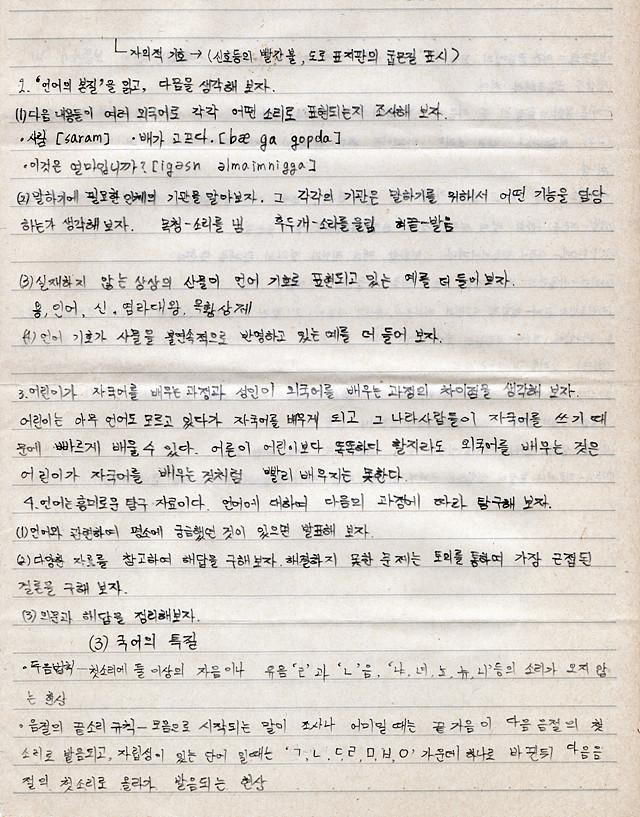 └ 자의적 기호 → (신호등의 빨간불, 도로 표지판의 굽은길 표시)
2. '언어의 본질'을 읽고, 다음을 생각해 보자.
(1) 다음 내용들이 여러 외국어로 각각 어떤 소리로 표현되는지 조사해 보자.
·사람 [saram] ·배가 고프다. [bæ ga gopda]
·이것은 얼마입니까? [igəsn əlmaimnigga]
(2) 말하기에 필요한 인체의 기관을 알아보자. 그 각각의 기관은 말하기를 위해서 어떤 기능을 담당
하는가 생각해 보자. 목청-소리를 냄 후두개-소리를 울림 혀끝-발음
(3) 실재하지 않는 상상의 산물이 언어 기호로 표현되고 있는 예를 더 들어 보자.
용, 인어, 신, 염라대왕, 옥황상제
(4) 언어 기호가 사물을 불연속적으로 반영하고 있는 예를 더 들어 보자.
3. 어린이가 자국어를 배우는 과정과 성인이 외국어를 배우는 과정의 차이점을 생각해 보자.
어린이는 아무 언어도 모르고 있다가 자국어를 배우게 되고 그 나라사람들이 자국어를 쓰기 때
문에 빠르게 배울 수 있다. 어른이 어린이보다 똑똑하다 할지라도 외국어를 배우는 것은
어린이가 자국어를 배우는 것처럼 빨리 배우지는 못한다.
4. 언어는 흥미로운 탐구 자료이다. 언어에 대하여 다음의 과정에 따라 탐구해 보자.
(1) 언어와 관련하여 평소에 궁금했던 것이 있으면 발표해 보자.
(2) 다양한 자료를 참고하여 해답을 구해보자. 해결하지 못한 문제는 토의를 통하여 가장 근접된
결론을 구해 보자.
(3) 의문과 해답을 정리해보자.
(3) 국어의 특질
·두음법칙-첫소리에 둘 이상의 자음이나 유음 'ㄹ'과 'ㄴ'음, '냐, 녀, 뇨, 뉴, 니' 등의 소리가 오지 않
는 현상
·음절의 끝소리 규칙-모음으로 시작되는 말이 조사나 어미일 때는 끝 자음이 다음 음절의 첫
소리로 발음되고, 자립성이 있는 단어 일때는 'ㄱ, ㄴ, ㄷ, ㄹ, ㅁ, ㅂ, ㅇ' 가운데 하나로 바뀐뒤 다음음
절의 첫소리로 올라가 발음되는 현상